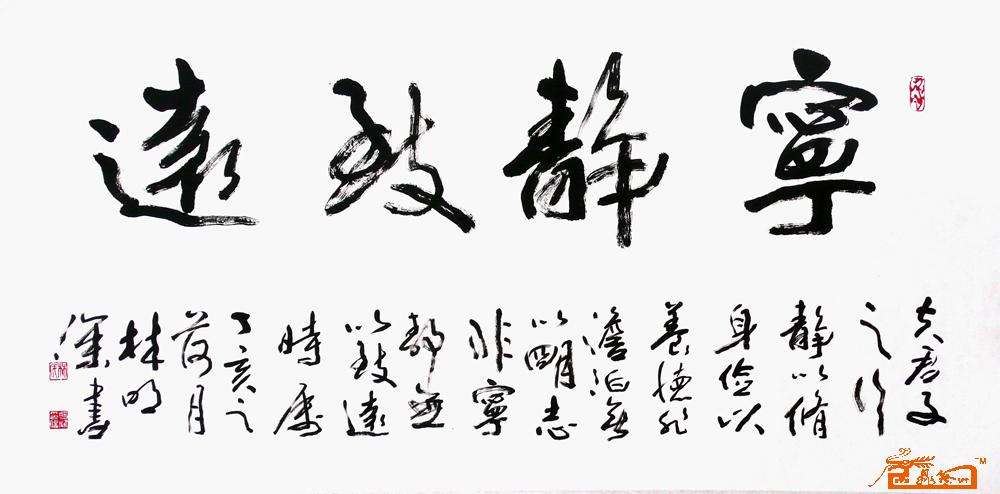 寧靜致遠
夫君子
之行
靜以脩
身儉以
養德非
澹泊無
以明志
非寧
靜無
以致遠
時屬
丁亥之
荷月
林明
深書